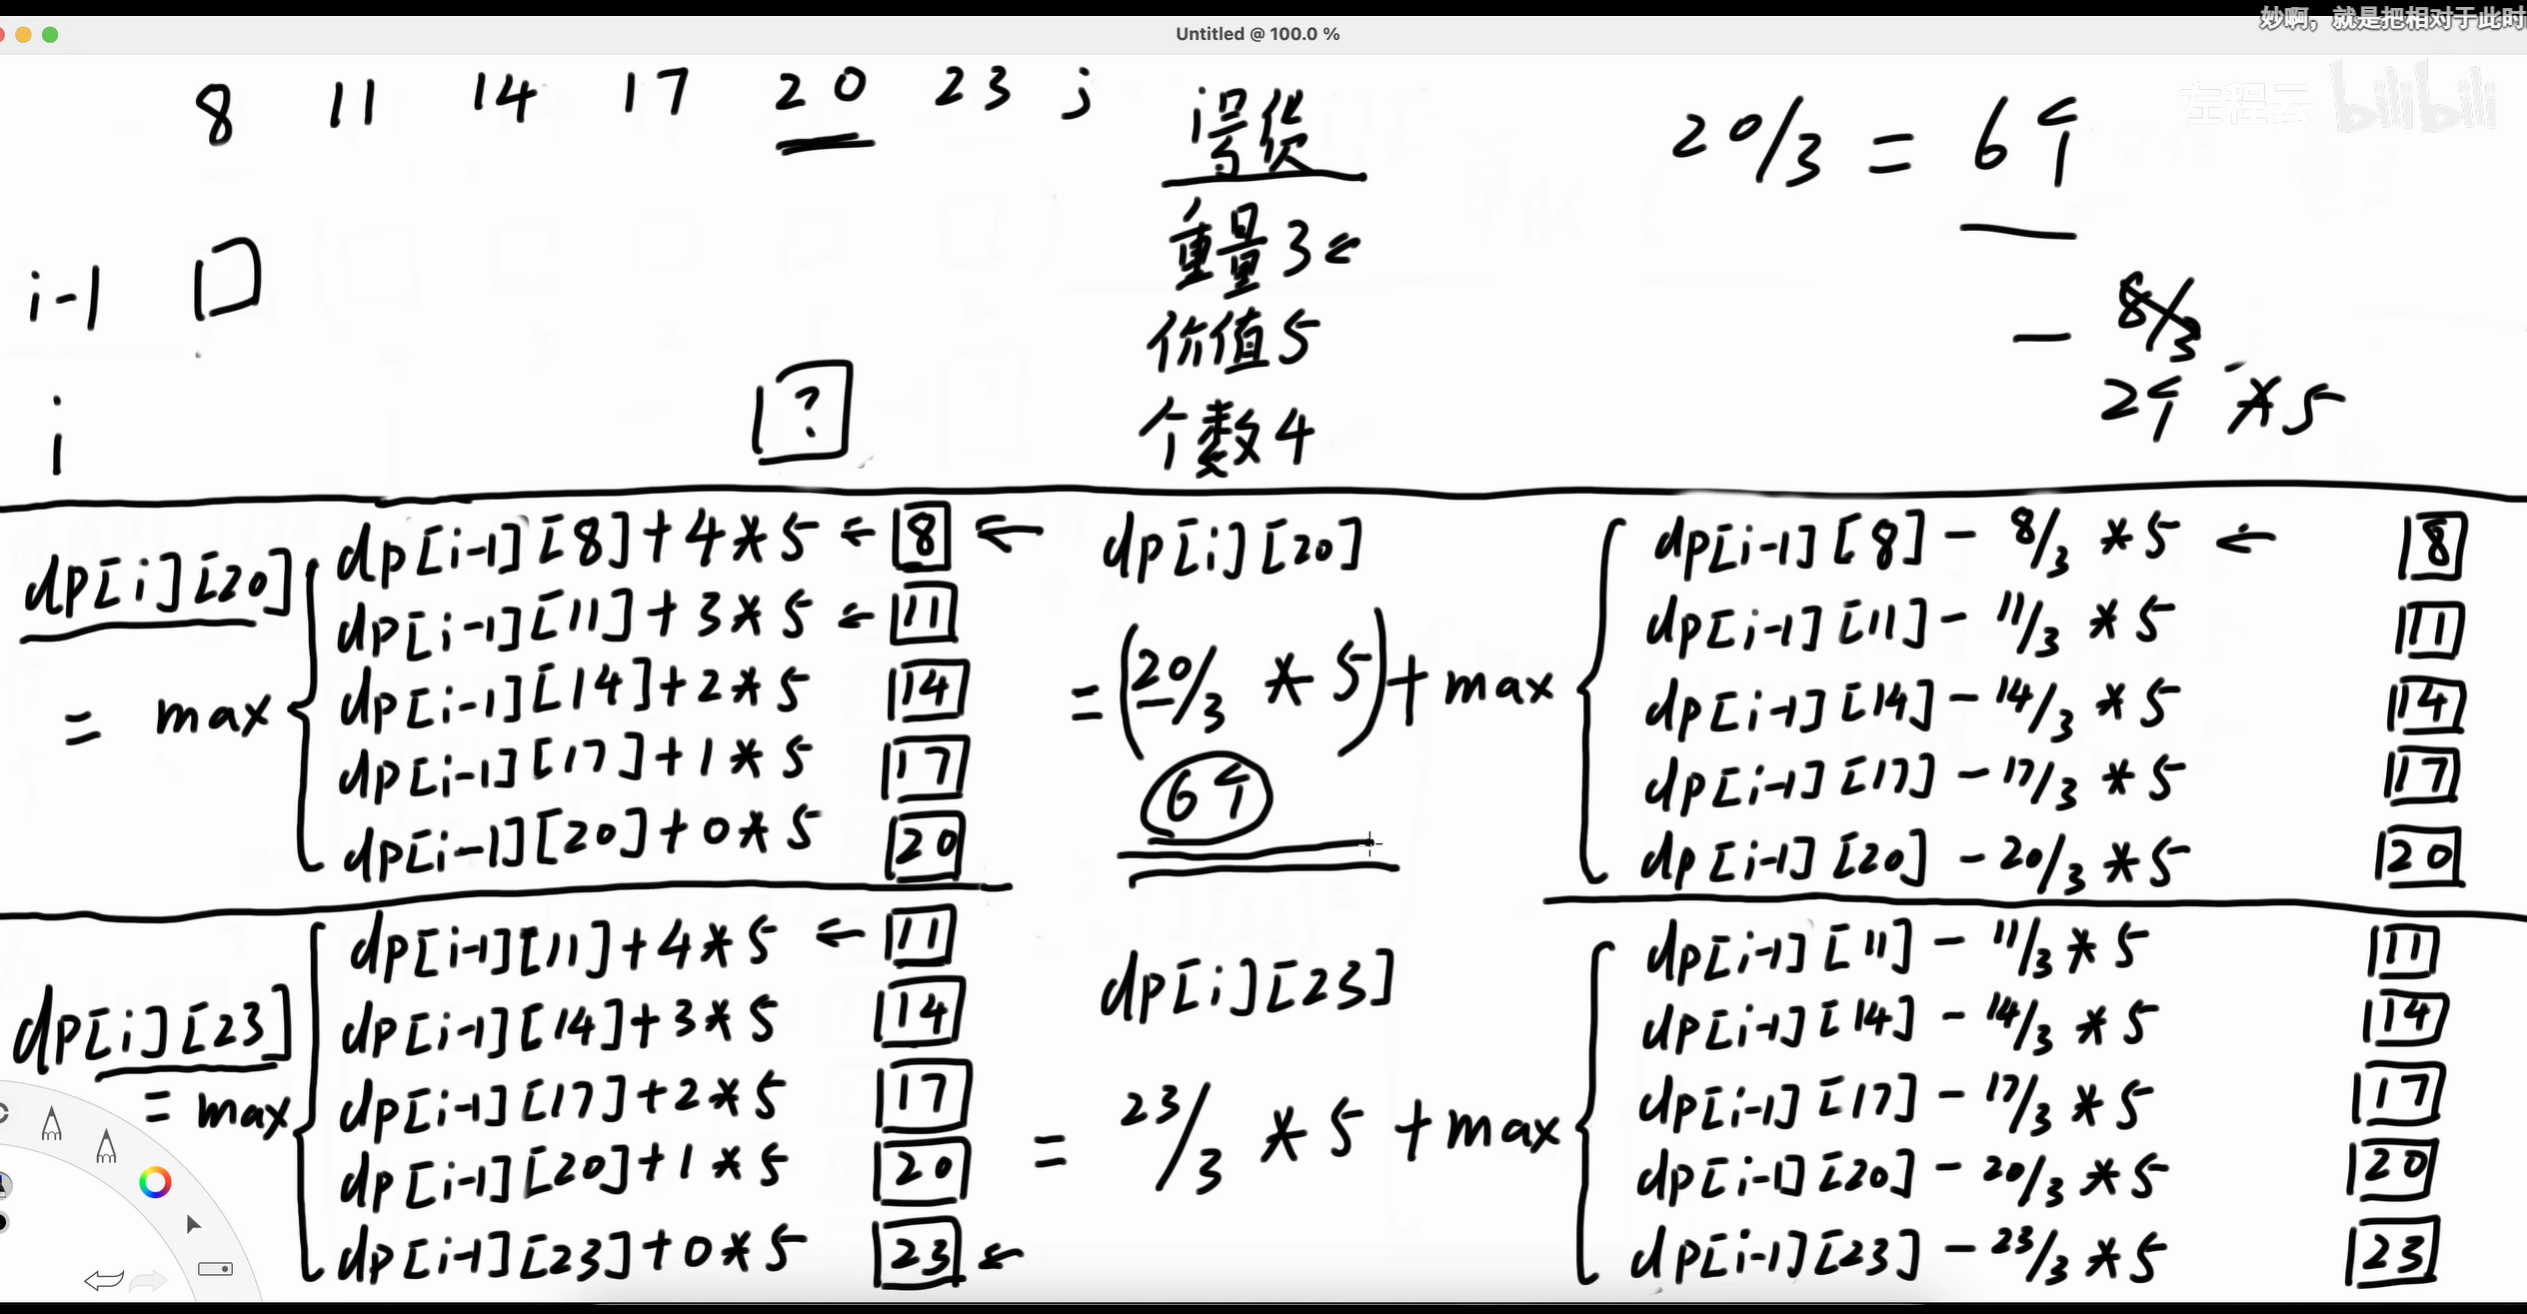 Untitled @ 100.0 %
妙啊，就是把相对于此时
左程云 bilibili
8 11 14 17 20 23 j
i号货
重量3
价值5
个数4
20/3 = 6个
- 8/3
2个 * 5
i-1
i
?
dp[i][20]
= max
dp[i-1][8]+4*5 ← 8 ←
dp[i-1][11]+3*5 ← 11
dp[i-1][14]+2*5 14
dp[i-1][17]+1*5 17
dp[i-1][20]+0*5 20
dp[i][20]
= (20/3 * 5) + max
6个
dp[i-1][8] - 8/3 * 5 ← 8
dp[i-1][11] - 11/3 * 5 11
dp[i-1][14] - 14/3 * 5 14
dp[i-1][17] - 17/3 * 5 17
dp[i-1][20] - 20/3 * 5 20
dp[i][23]
= max
dp[i-1][11]+4*5 ← 11
dp[i-1][14]+3*5 14
dp[i-1][17]+2*5 17
dp[i-1][20]+1*5 20
dp[i-1][23]+0*5 23 ←
dp[i][23]
= 23/3 * 5 + max
dp[i-1][11] - 11/3 * 5 11
dp[i-1][14] - 14/3 * 5 14
dp[i-1][17] - 17/3 * 5 17
dp[i-1][20] - 20/3 * 5 20
dp[i-1][23] - 23/3 * 5 23